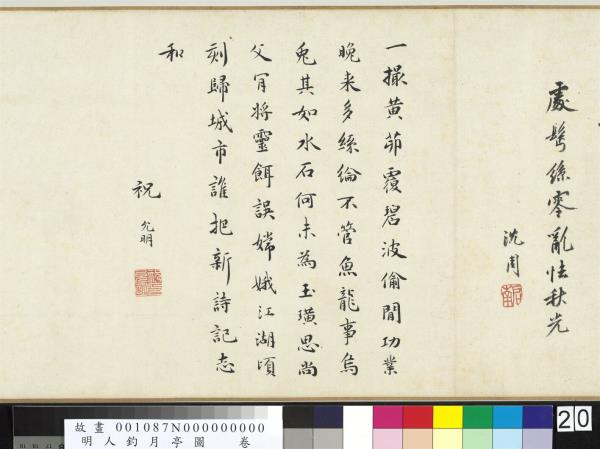 處鬢絲零亂怯秋光
沈周
一撮黃茆覆碧波偷閒功業
晚来多絲綸不管魚龍事烏
兔其如水石何未為玉璜思尚
父肎將靈餌誤嫦娥江湖頃
刻歸城市誰把新詩記志
和
祝
允明
20
故畫 001087N000000000
明人釣月亭圖 卷